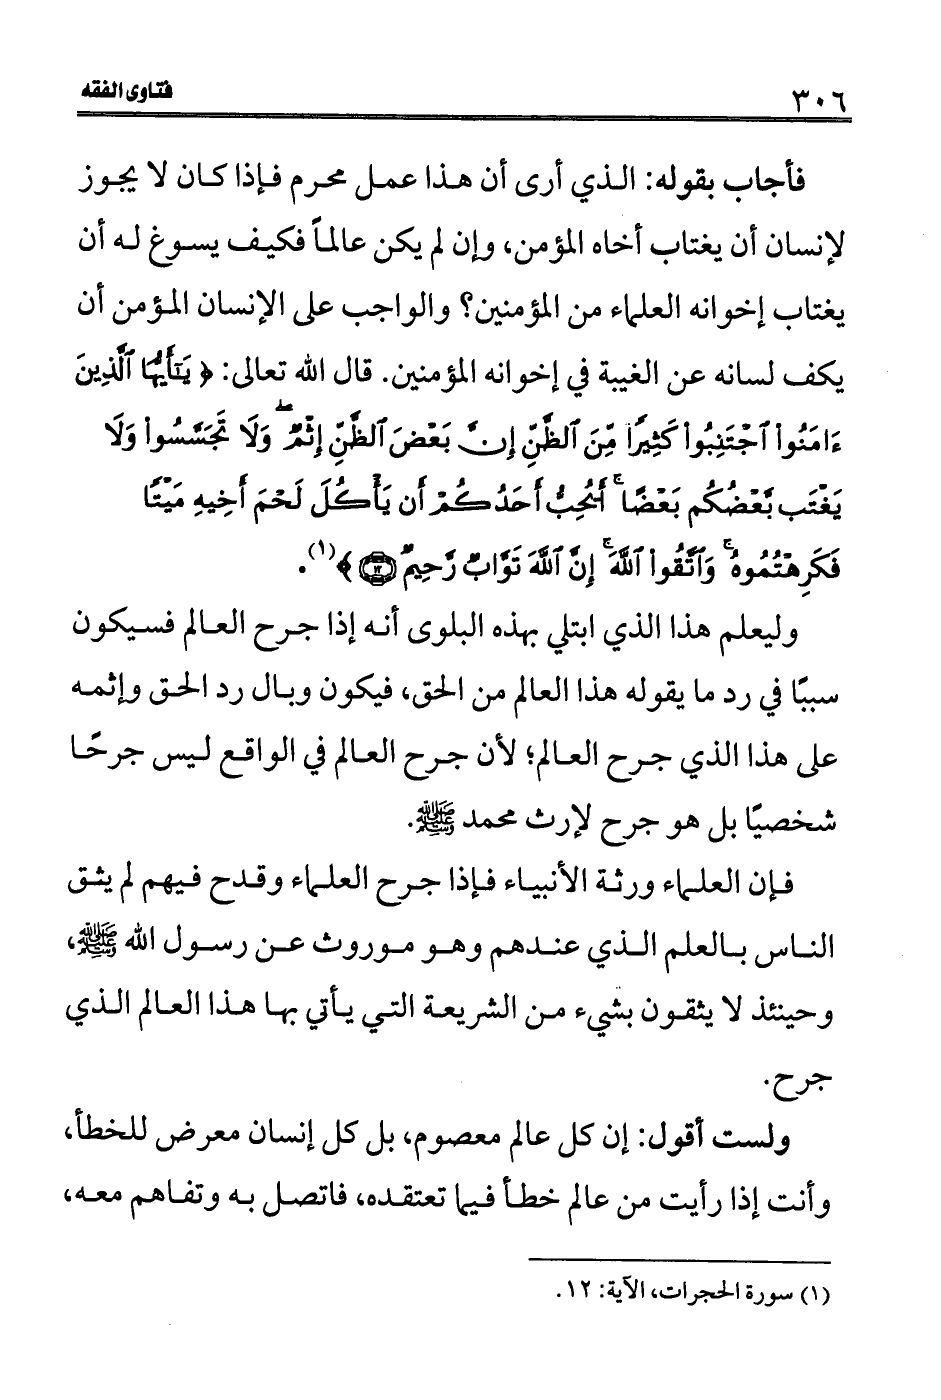 ٣٠٦
فتاوى الفقه
فأجاب بقوله: الذي أرى أن هذا عمل محرم فإذا كان لا يجوز
لإنسان أن يغتاب أخاه المؤمن، وإن لم يكن عالماً فكيف يسوغ له أن
يغتاب إخوانه العلماء من المؤمنين؟ والواجب على الإنسان المؤمن أن
يكف لسانه عن الغيبة في إخوانه المؤمنين. قال الله تعالى: ﴿ يَٰٓأَيُّهَا ٱلَّذِينَ
ءَامَنُوا۟ ٱجْتَنِبُوا۟ كَثِيرًا مِّنَ ٱلظَّنِّ إِنَّ بَعْضَ ٱلظَّنِّ إِثْمٌ ۖ وَلَا تَجَسَّسُوا۟ وَلَا
يَغْتَب بَّعْضُكُم بَعْضًا ۚ أَيُحِبُّ أَحَدُكُمْ أَن يَأْكُلَ لَحْمَ أَخِيهِ مَيْتًا
فَكَرِهْتُمُوهُ ۚ وَٱتَّقُوا۟ ٱللَّهَ ۚ إِنَّ ٱللَّهَ تَوَّابٌ رَّحِيمٌ ۝١٢ ﴾(١).
وليعلم هذا الذي ابتلي بهذه البلوى أنه إذا جرح العالم فسيكون
سببًا في رد ما يقوله هذا العالم من الحق، فيكون وبال رد الحق وإثمه
على هذا الذي جرح العالم؛ لأن جرح العالم في الواقع ليس جرحًا
شخصيًا بل هو جرح لإرث محمد ﷺ.
فإن العلماء ورثة الأنبياء فإذا جرح العلماء وقدح فيهم لم يثق
الناس بالعلم الذي عندهم وهو موروث عن رسول الله ﷺ،
وحينئذ لا يثقون بشيء من الشريعة التي يأتي بها هذا العالم الذي
جرح.
ولست أقول: إن كل عالم معصوم، بل كل إنسان معرض للخطأ،
وأنت إذا رأيت من عالم خطأ فيما تعتقده، فاتصل به وتفاهم معه،
(١) سورة الحجرات، الآية: ١٢.